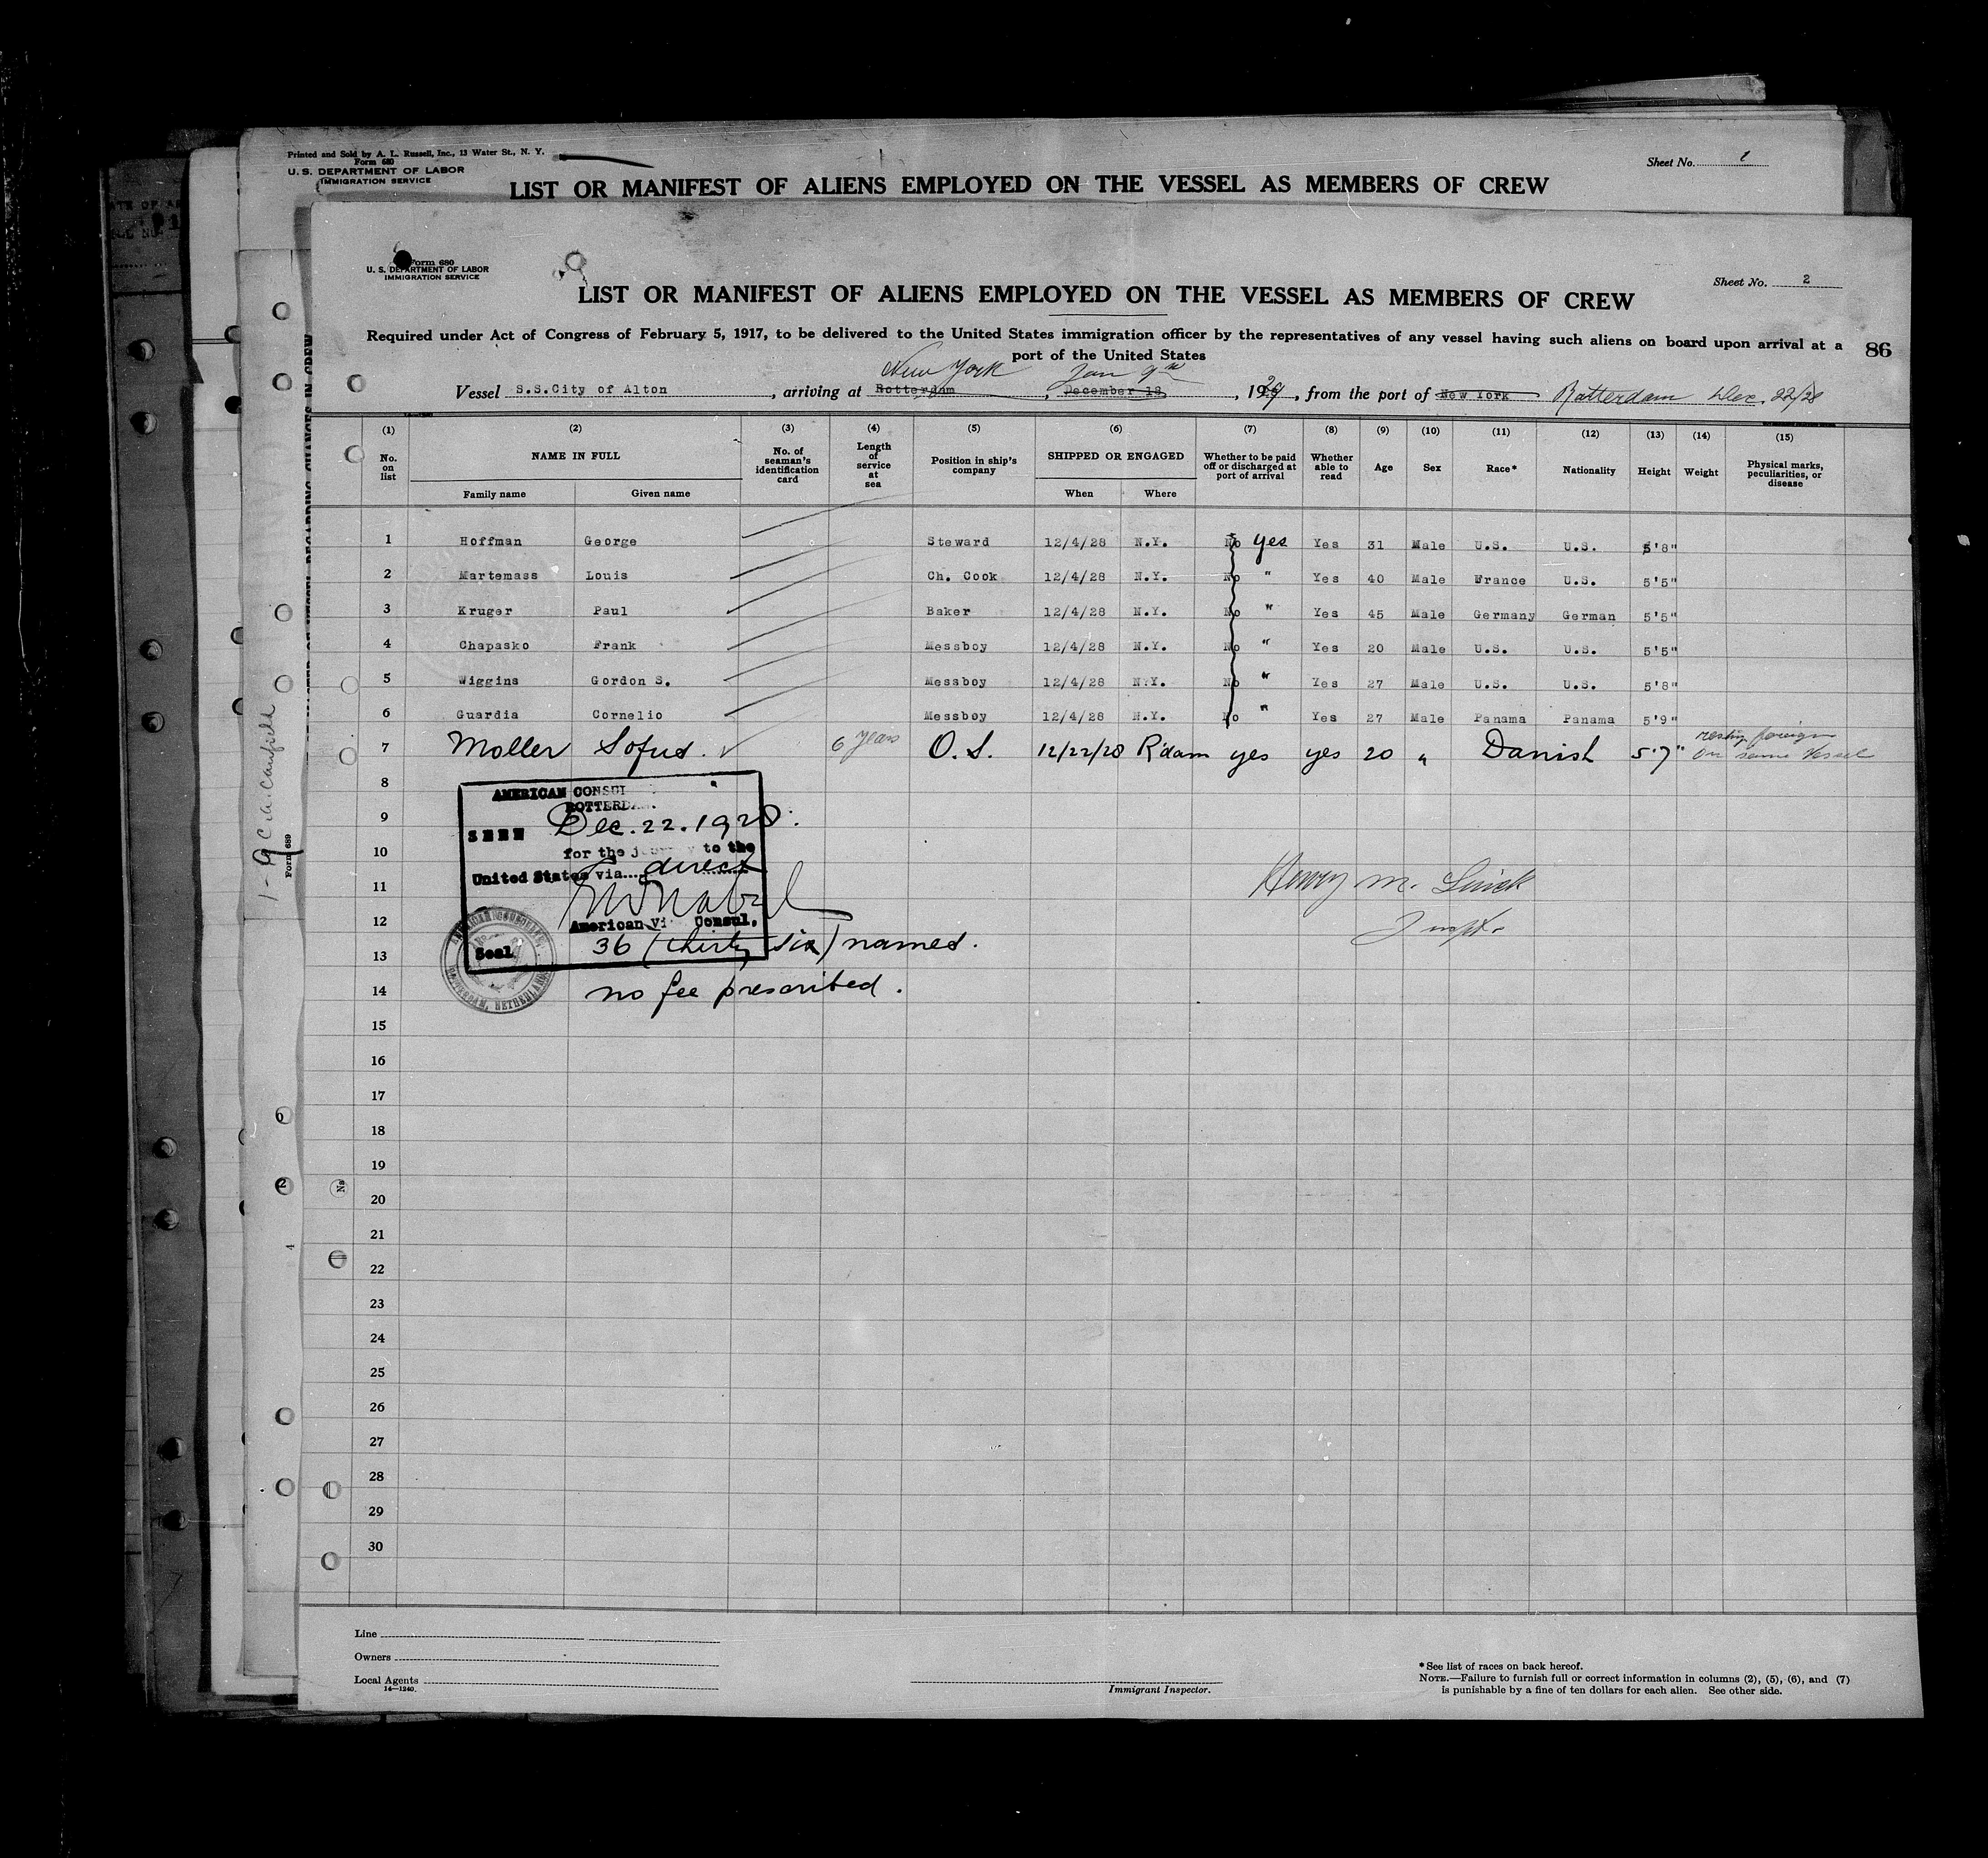 Printed and Sold by A. L. Russell, Inc., 13 Water St., N. Y.
Form 680
U. S. DEPARTMENT OF LABOR
IMMIGRATION SERVICE
Sheet No. 1
LIST OR MANIFEST OF ALIENS EMPLOYED ON THE VESSEL AS MEMBERS OF CREW
Form 680
U. S. DEPARTMENT OF LABOR
IMMIGRATION SERVICE
Sheet No. 2
LIST OR MANIFEST OF ALIENS EMPLOYED ON THE VESSEL AS MEMBERS OF CREW
Required under Act of Congress of February 5, 1917, to be delivered to the United States immigration officer by the representatives of any vessel having such aliens on board upon arrival at a
port of the United States
86
New York Jan 9th
Vessel S.S.City of Alton, arriving at Rotterdam, December 18, 1929, from the port of New York Rotterdam Dec. 22/28
(1) (2) (3) (4) (5) (6) (7) (8) (9) (10) (11) (12) (13) (14) (15)
No. on list NAME IN FULL No. of seaman's identification card Length of service at sea Position in ship's company SHIPPED OR ENGAGED Whether to be paid off or discharged at port of arrival Whether able to read Age Sex Race* Nationality Height Weight Physical marks, peculiarities, or disease
Family name Given name When Where
1 Hoffman George Steward 12/4/28 N.Y. No yes Yes 31 Male U.S. U.S. 5'8"
2 Martemass Louis Ch. Cook 12/4/28 N.Y. No " Yes 40 Male France U.S. 5'5"
3 Kruger Paul Baker 12/4/28 N.Y. No " Yes 45 Male Germany German 5'5"
4 Chapasko Frank Messboy 12/4/28 N.Y. No " Yes 20 Male U.S. U.S. 5'5"
5 Wiggins Gordon S. Messboy 12/4/28 N.Y. No " Yes 27 Male U.S. U.S. 5'8"
6 Guardia Cornelio Messboy 12/4/28 N.Y. No " Yes 27 Male Panama Panama 5'9"
7 Moller Sofus. 6 years O.S. 12/22/28 R'dam yes yes 20 " Danish 5'7" foreign
on same Vessel
8
AMERICAN CONSUL
ROTTERDAM
9
SEEN Dec. 22. 1928.
10
for the journey to the
United States via direct
11
Henry M.
12
American Vice Consul.
Inspt.
13
Seal 36 (thirty six) names.
14
no fee prescribed.
15
16
17
18
19
20
21
22
23
24
25
26
27
28
29
30
1-9 C.A. Canfield
Form 689
Line
Owners
Local Agents
14—1240.
Immigrant Inspector.
* See list of races on back hereof.
NOTE.—Failure to furnish full or correct information in columns (2), (5), (6), and (7)
is punishable by a fine of ten dollars for each alien. See other side.